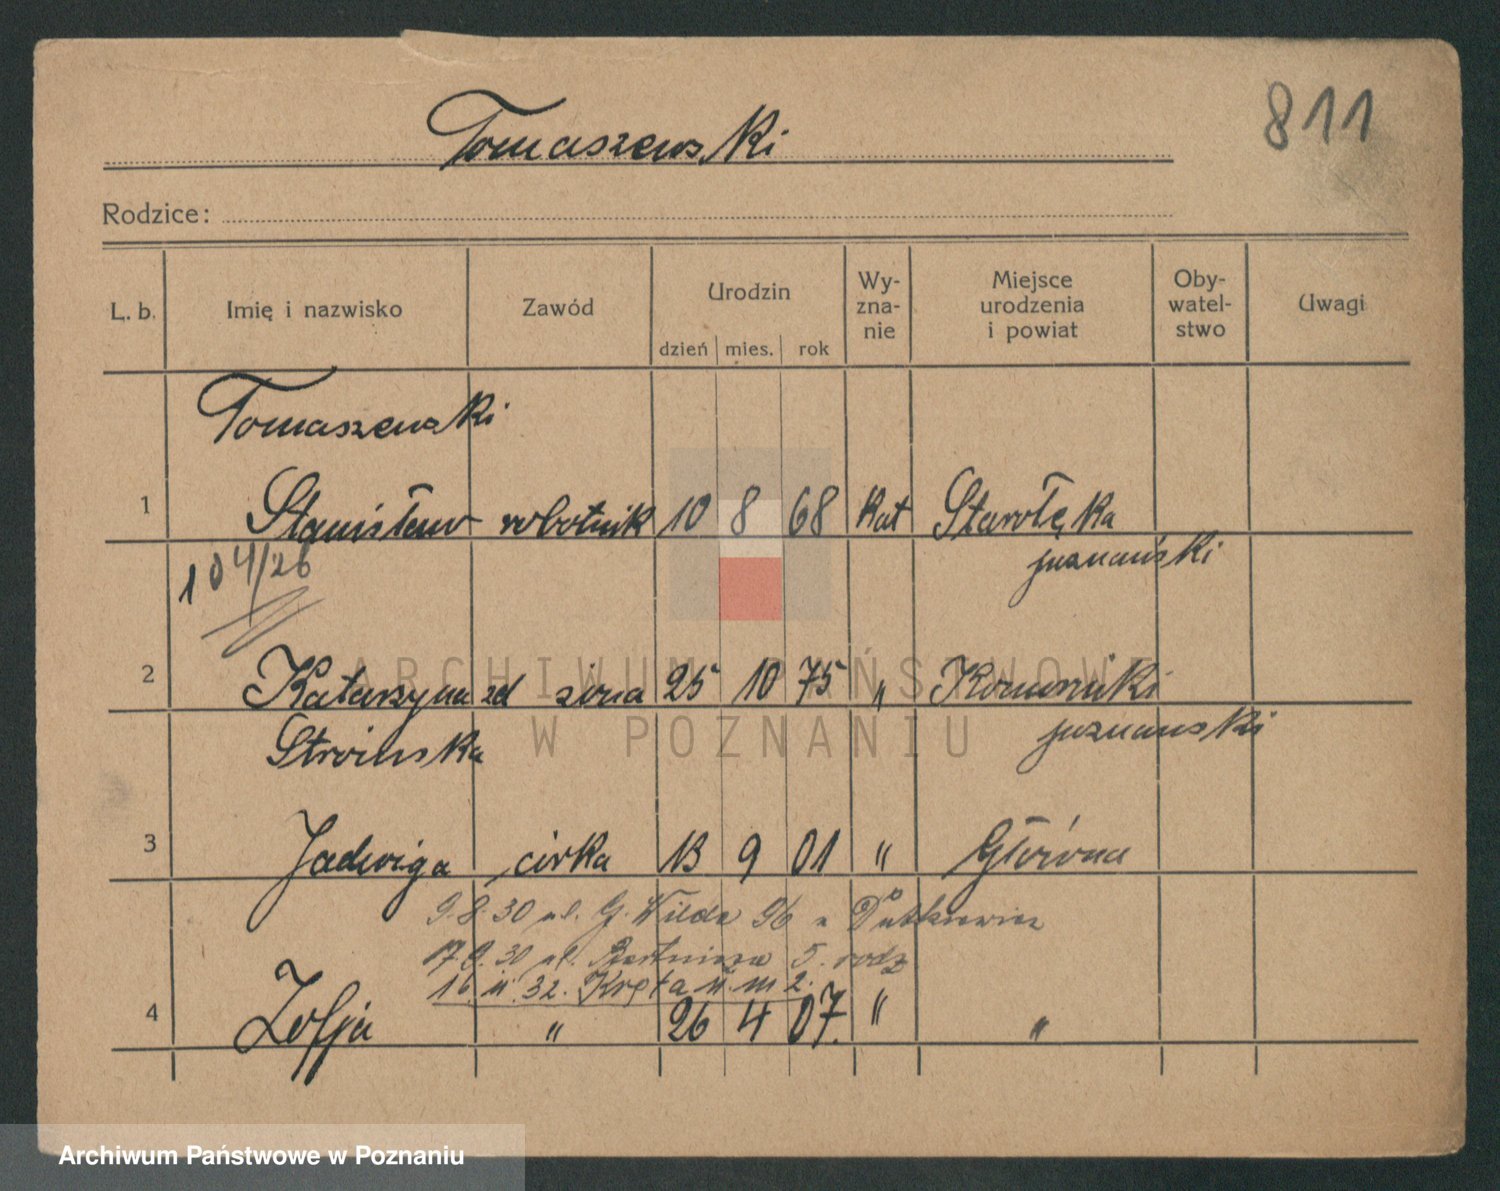 811
Tomaszewski
Rodzice:
L. b. Imię i nazwisko Zawód Urodzin dzień mies. rok Wy-zna-nie Miejsce urodzenia i powiat Oby-watel-stwo Uwagi
Tomaszewski
1 Stanisław robotnik 10 8 68 kat Starołęka
poznański
104/26
2 Katarzyna zd żona 25 10 75 " Komorniki
Stroińska poznański
3 Jadwiga córka 13 9 01 " Główna
9.8.30 ul. G. Wilda 96 u Dutkiewicz
17.9.30 ul. 5. rodz
16 11 32. Kręta 11 m 2.
4 Zofja " 26 4 07. " "
ARCHIWUM PAŃSTWOWE
W POZNANIU
Archiwum Państwowe w Poznaniu